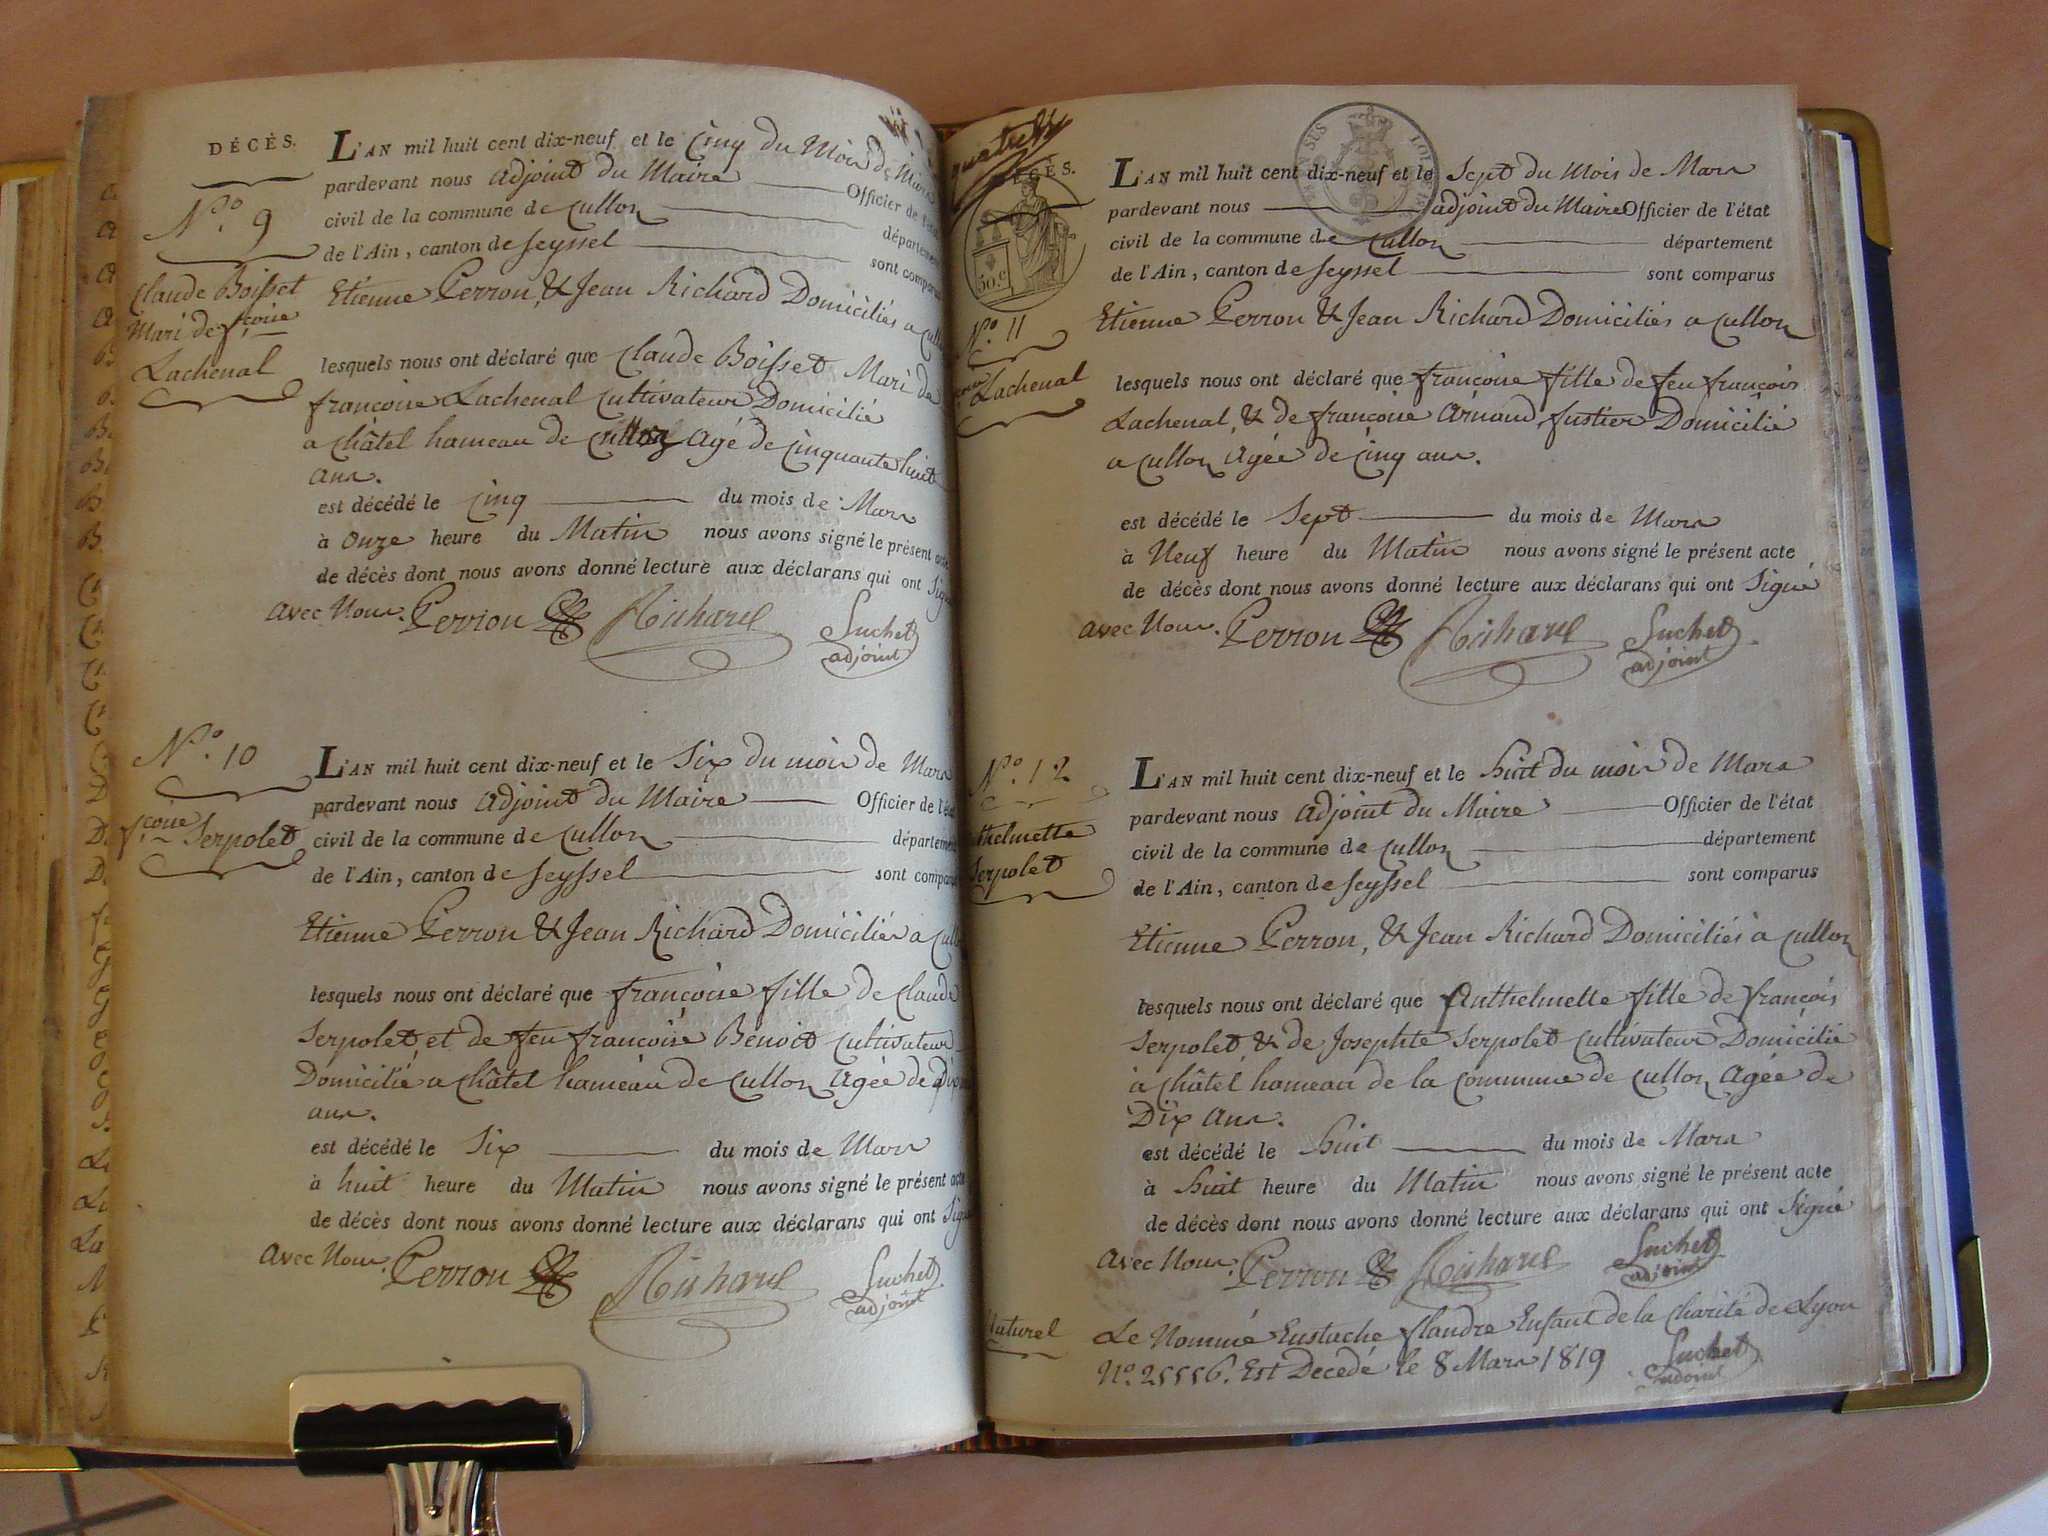 DÉCÈS.
N.º 9
Claude Boisset
Mari de fçoise
Lachenal
L'AN mil huit cent dix-neuf et le Cinq du Mois de Mars
pardevant nous adjoint du Maire Officier de l'état
civil de la commune de Cullon département
de l'Ain, canton de Seyssel sont comparus
Etienne Perron, & Jean Richard Domiciliés a Cullon
lesquels nous ont déclaré que Claude Boisset Mari de
françoise Lachenal Cultivateur Domicilié
a Châtel hameau de Cullon agé de Cinquante huit
ans.
est décédé le Cinq du mois de Mars
à Onze heure du Matin nous avons signé le présent acte
de décès dont nous avons donné lecture aux déclarans qui ont Signé
avec Nous. Perron Richard Suchet
adjoint
N.º 10
fçoise Serpolet
L'AN mil huit cent dix-neuf et le Six du mois de Mars
pardevant nous adjoint du Maire Officier de l'état
civil de la commune de Cullon département
de l'Ain, canton de Seyssel sont comparus
Etienne Perron & Jean Richard Domiciliés a Cullon
lesquels nous ont déclaré que françoise fille de Claude
Serpolet et de feu françoise Benoit Cultivateur
Domicilié a Châtel hameau de Cullon Agée de
ans.
est décédé le Six du mois de Mars
à huit heure du Matin nous avons signé le présent acte
de décès dont nous avons donné lecture aux déclarans qui ont Signé
avec Nous. Perron Richard Suchet
adjoint
DÉCÈS.
50.c
N.º 11
Lachenal
L'AN mil huit cent dix-neuf et le Sept du Mois de Mars
pardevant nous adjoint du Maire Officier de l'état
civil de la commune de Cullon département
de l'Ain, canton de Seyssel sont comparus
Etienne Perron & Jean Richard Domiciliés a Cullon
lesquels nous ont déclaré que françoise fille de feu françois
Lachenal, & de françoise Arnaud fustier Domicilié
a Cullon Agée de Cinq ans.
est décédé le Sept du mois de Mars
à Neuf heure du Matin nous avons signé le présent acte
de décès dont nous avons donné lecture aux déclarans qui ont Signé
avec Nous. Perron Richard Suchet
adjoint
N.º 12
thelmette
Serpolet
L'AN mil huit cent dix-neuf et le huit du mois de Mars
pardevant nous adjoint du Maire Officier de l'état
civil de la commune de Cullon département
de l'Ain, canton de Seyssel sont comparus
Etienne Perron, & Jean Richard Domiciliés a Cullon
lesquels nous ont déclaré que Anthelmette fille de françois
Serpolet, & de Josephte Serpolet Cultivateur Domicilié
à Châtel hameau de la Commune de Cullon Agée de
Dix Ans.
est décédé le huit du mois de Mars
à huit heure du Matin nous avons signé le présent acte
de décès dont nous avons donné lecture aux déclarans qui ont Signé
avec Nous. Perron Richard Suchet
adjoint
Naturel
Le Nommé Eustache flandre Enfant de la Charité de Lyon
Nº. 25556. Est Decedé le 8 Mars 1819 Suchet
adjoint